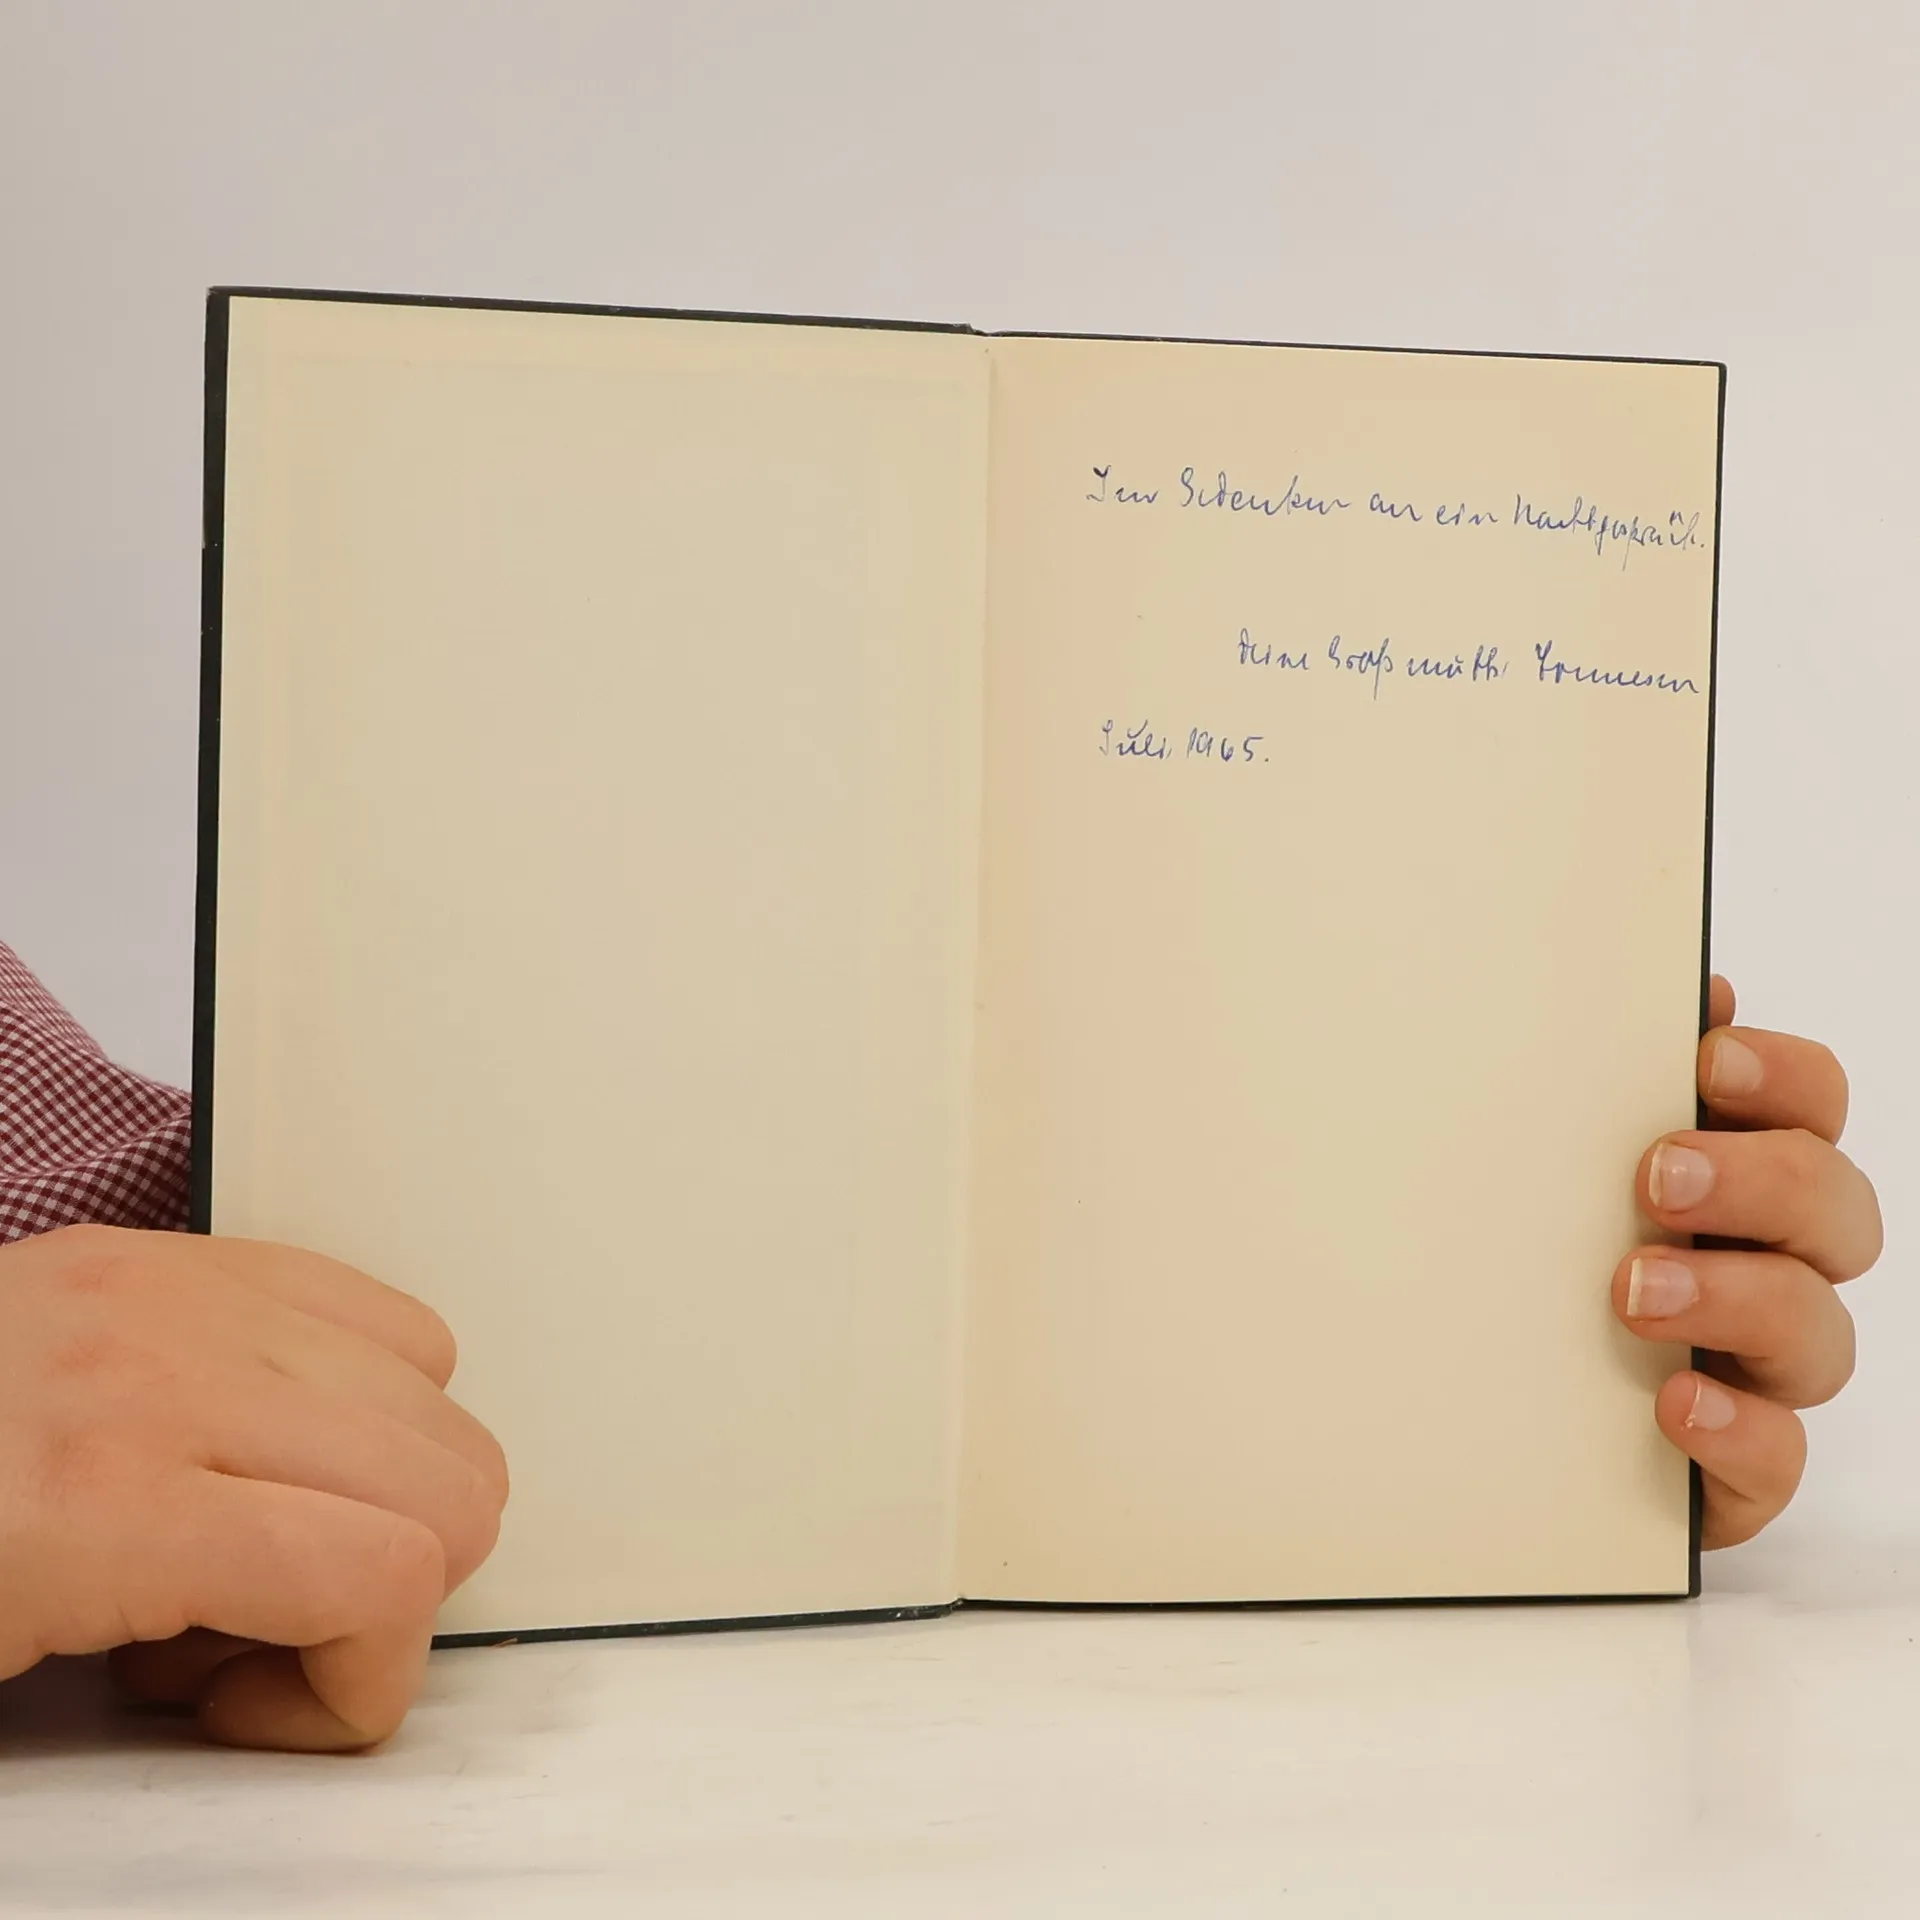 Im Gedenken an ein Nachtgespräch.
Deine Großmutth.
Juli 1965.